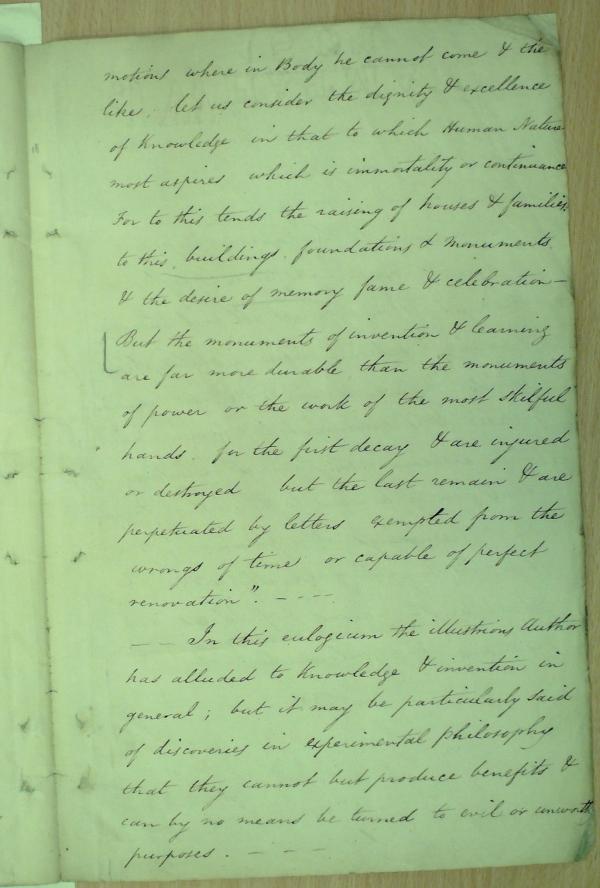 motions where in Body he cannot come & the
like. let us consider the dignity & excellence
of Knowledge in that to which Human Nature
most aspires which is immortality or continuance
For to this tends the raising of houses & families.
to this buildings. foundations & monuments
& the desire of memory fame & celebration —
But the monuments of invention & learning
are far more durable than the monuments
of power or the work of the most skilful
hands. for the first decay & are injured
or destroyed but the last remain & are
perpetuated by letters exempted from the
wrongs of time or capable of perfect
renovation". - - - -
— — In this eulogium the illustrious Author
has alluded to Knowledge & invention in
general; but it may be particularly said
of discoveries in experimental philosophy
that they cannot but produce benefits &
can by no means be turned to evil or unworth
purposes. - — -